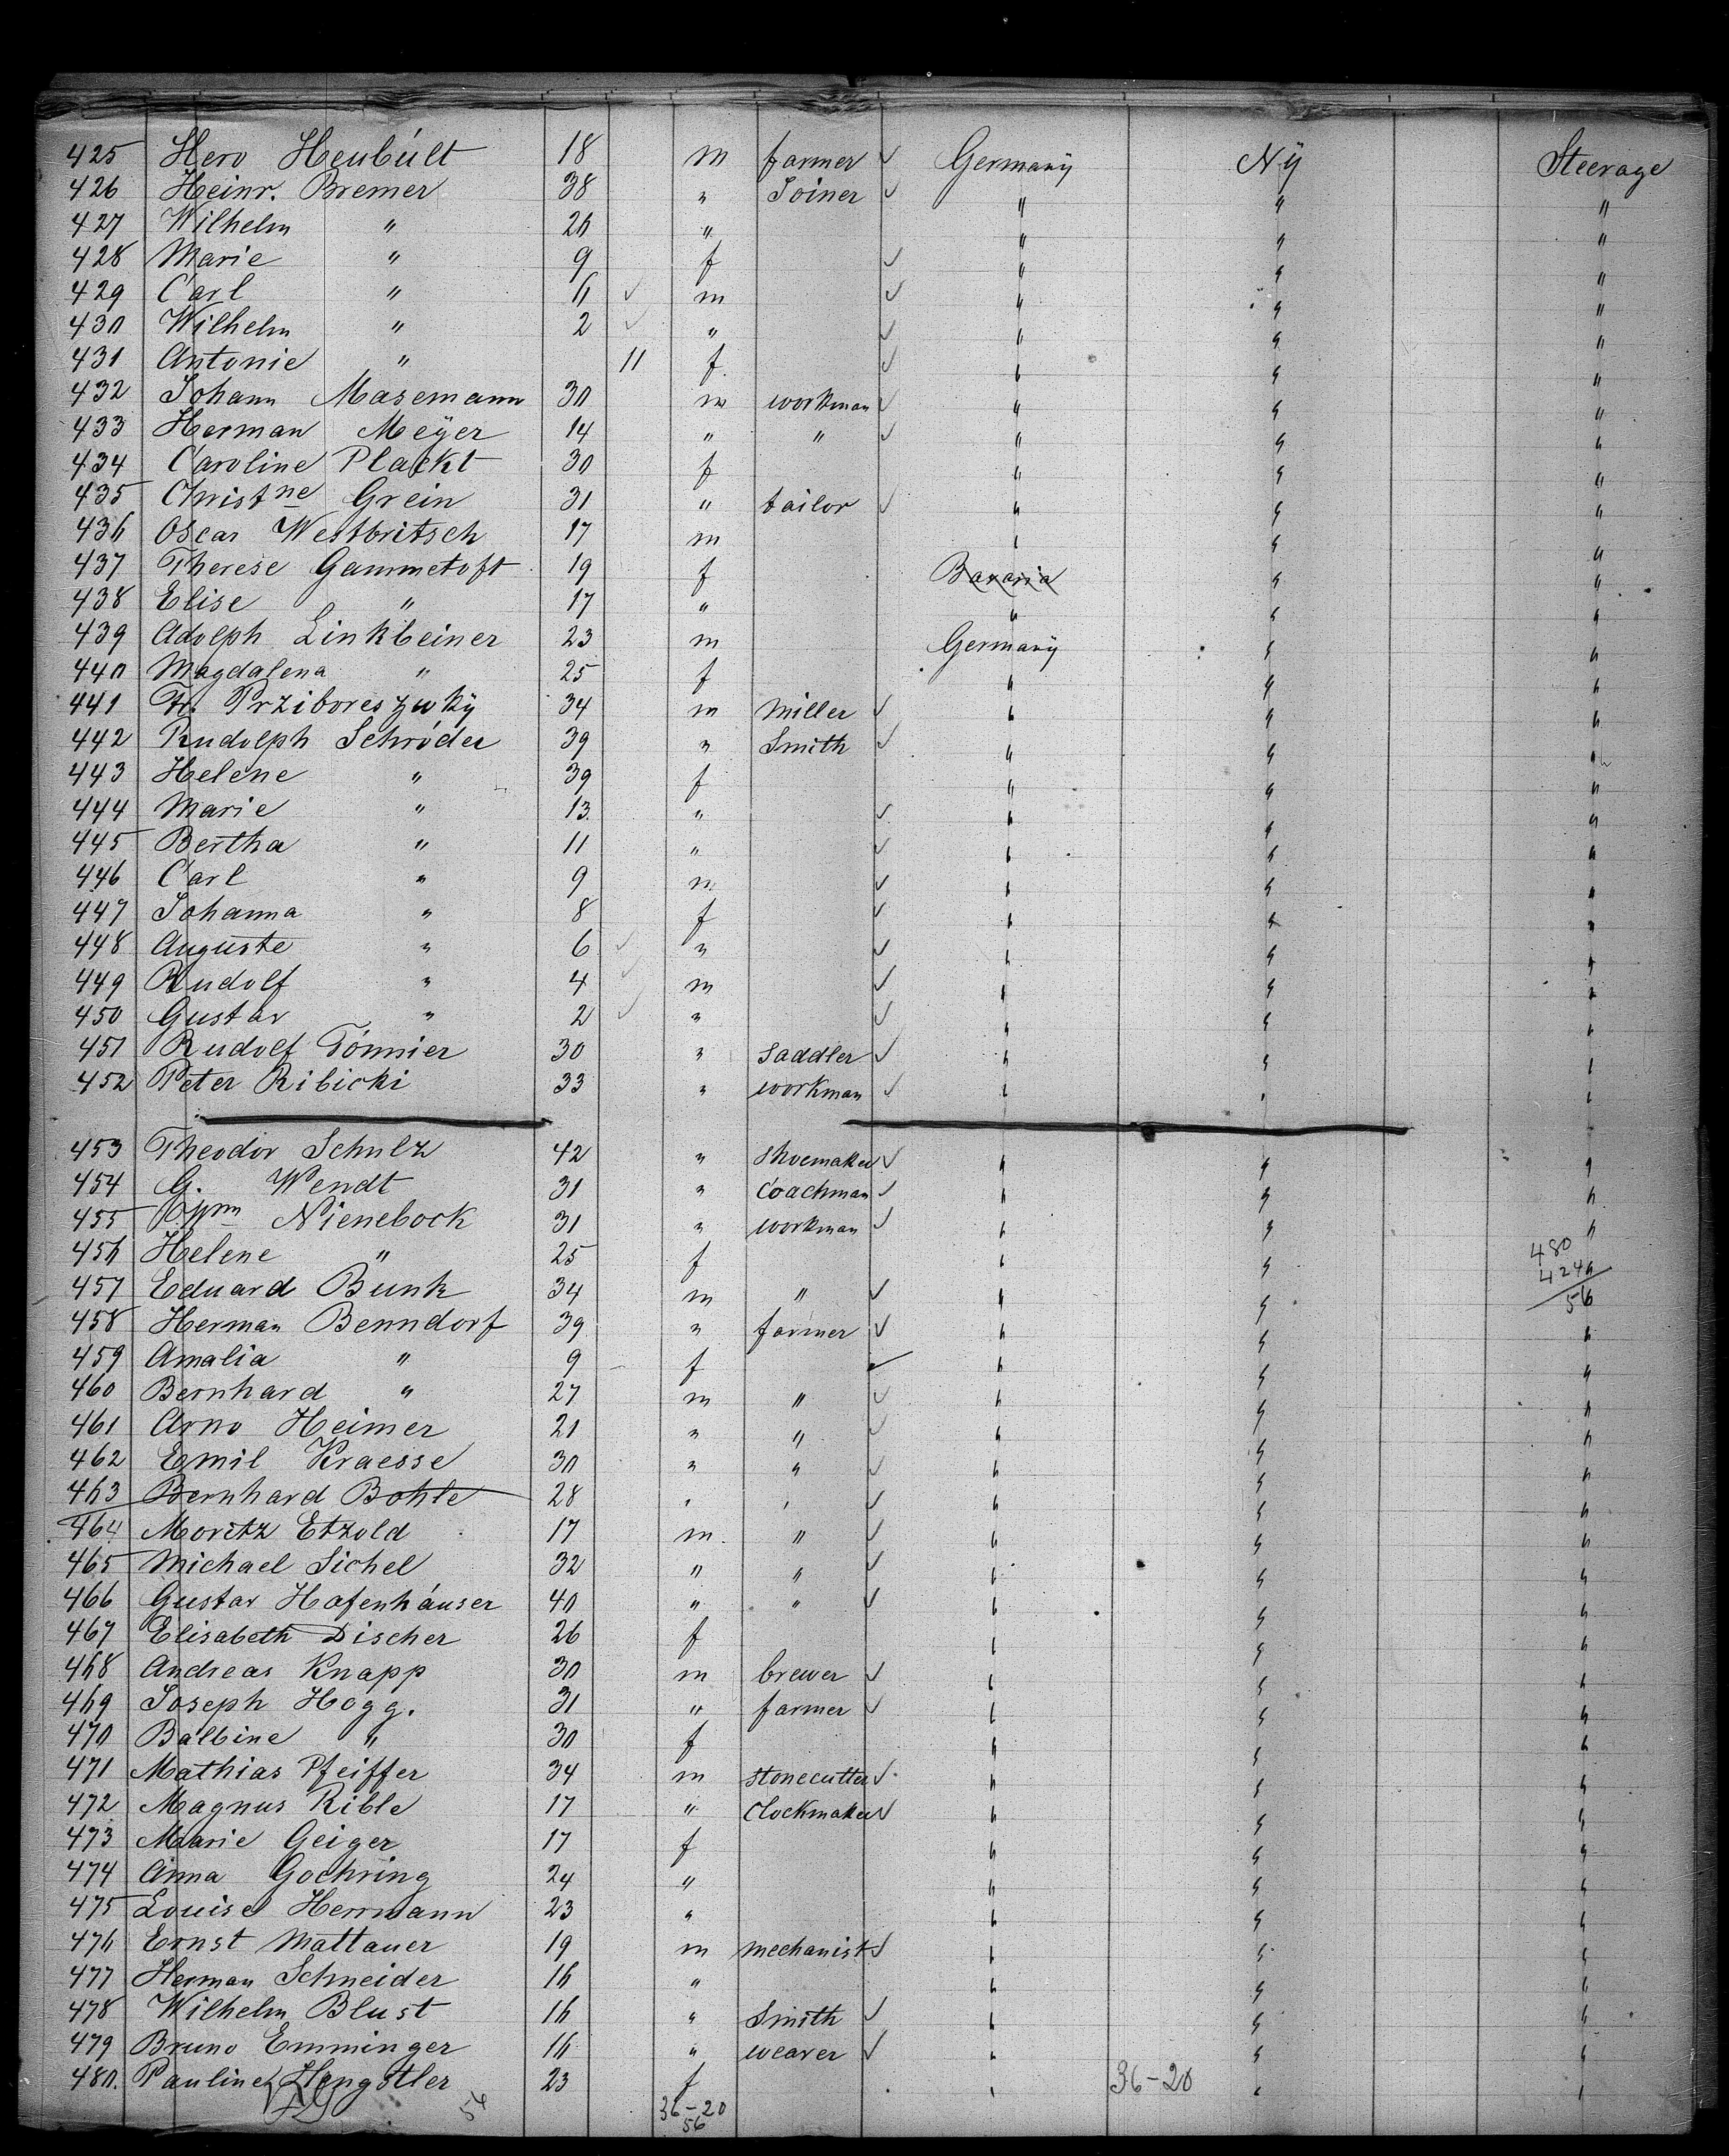 425 Hero Heubült 18 m farmer ✓ Germany Ny Steerage
426 Heinr. Bremer 38 " Joiner ✓ " " "
427 Wilhelm " 26 " " " "
428 Marie " 9 f ✓ " " "
429 Carl " 6 ✓ m ✓ " " "
430 Wilhelm " 2 ✓ " ✓ " " "
431 Antonie " 11 f ✓ " " "
432 Johann Masemann 30 m workman ✓ " " "
433 Herman Meyer 14 " " ✓ " " "
434 Caroline Plackt 30 f " " "
435 Christne Grein 31 " tailor ✓ " " "
436 Oscar Westbritsch 17 m " " "
437 Therese Gammetoft 19 f Bavaria " "
438 Elise " 17 " " " "
439 Adolph Linkbeiner 23 m Germany " "
440 Magdalena " 25 f " " "
441 Fr. Prziboreszwky 34 m miller ✓ " " "
442 Rudolph Schröder 39 " Smith ✓ " " "
443 Helene " 39 f " " "
444 Marie " 13 " ✓ " " "
445 Bertha " 11 " ✓ " " "
446 Carl " 9 m ✓ " " "
447 Johanna " 8 f ✓ " " "
448 Auguste " 6 ✓ " ✓ " " "
449 Rudolf " 4 ✓ m ✓ " " "
450 Gustav " 2 ✓ " ✓ " " "
451 Rudolf Tönnier 30 " Saddler ✓ " " "
452 Peter Ribicki 33 " workman ✓ " " "
453 Theodor Schulz 42 " shoemaker ✓ " " "
454 G. Wendt 31 " Coachman ✓ " " "
455 Wm Nienebock 31 " workman ✓ " " "
456 Helene " 25 f " " 480
457 Eduard Bunk 34 m " ✓ " " 424
56
458 Herman Benndorf 39 " farmer ✓ " " "
459 Amalia " 9 f ✓ " " "
460 Bernhard " 27 m " ✓ " " "
461 Arno Heimer 21 " " ✓ " " "
462 Emil Kraesse 30 " " ✓ " " "
463 Bernhard Bohle 28 " " ✓ " " "
464 Moritz Etzold 17 m " ✓ " " "
465 Michael Sichel 32 " " ✓ " " "
466 Gustav Hafenhäuser 40 " " ✓ " " "
467 Elisabeth Discher 26 f " " "
468 Andreas Knapp 30 m brewer ✓ " " "
469 Joseph Hogg. 31 " farmer ✓ " " "
470 Balbine " 30 f " " "
471 Mathias Pfeiffer 34 m stonecutter ✓ " " "
472 Magnus Rible 17 " Clockmaker ✓ " " "
473 Marie Geiger 17 f " " "
474 Anna Goehring 24 " " " "
475 Louise Herrmann 23 " " " "
476 Ernst Mattauer 19 m mechanist ✓ " " "
477 Herman Schneider 16 " " " "
478 Wilhelm Blust 16 " Smith ✓ " " "
479 Bruno Emminger 16 " weaver ✓ " " "
480. Pauline Hengstler 23 f " 36-20 " "
54 36-20
56